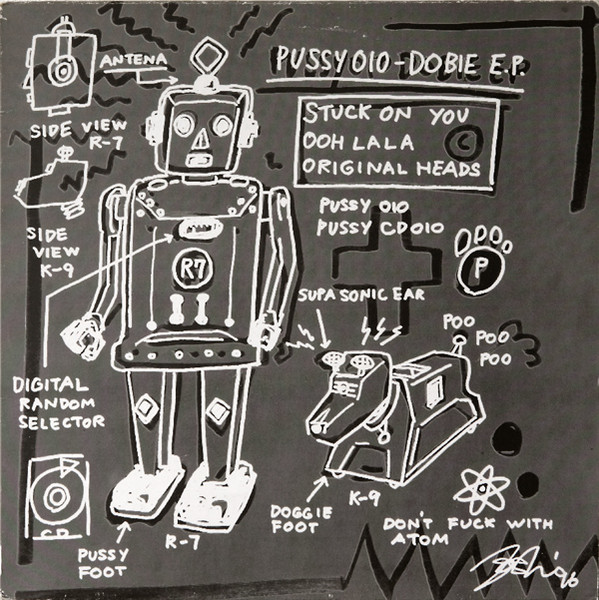 PUSSY 010 - DOBIE E.P.
STUCK ON YOU
OOH LALA
ORIGINAL HEADS
C
PUSSY 010
PUSSY CD010
ANTENA
SIDE VIEW
R-7
SIDE
VIEW
K-9
R7
P
SUPA SONIC EAR
POO
POO
POO
DIGITAL
RANDOM
SELECTOR
CD
PUSSY
FOOT
R-7
DOGGIE
FOOT
K-9
DON'T FUCK WITH
ATOM
'96